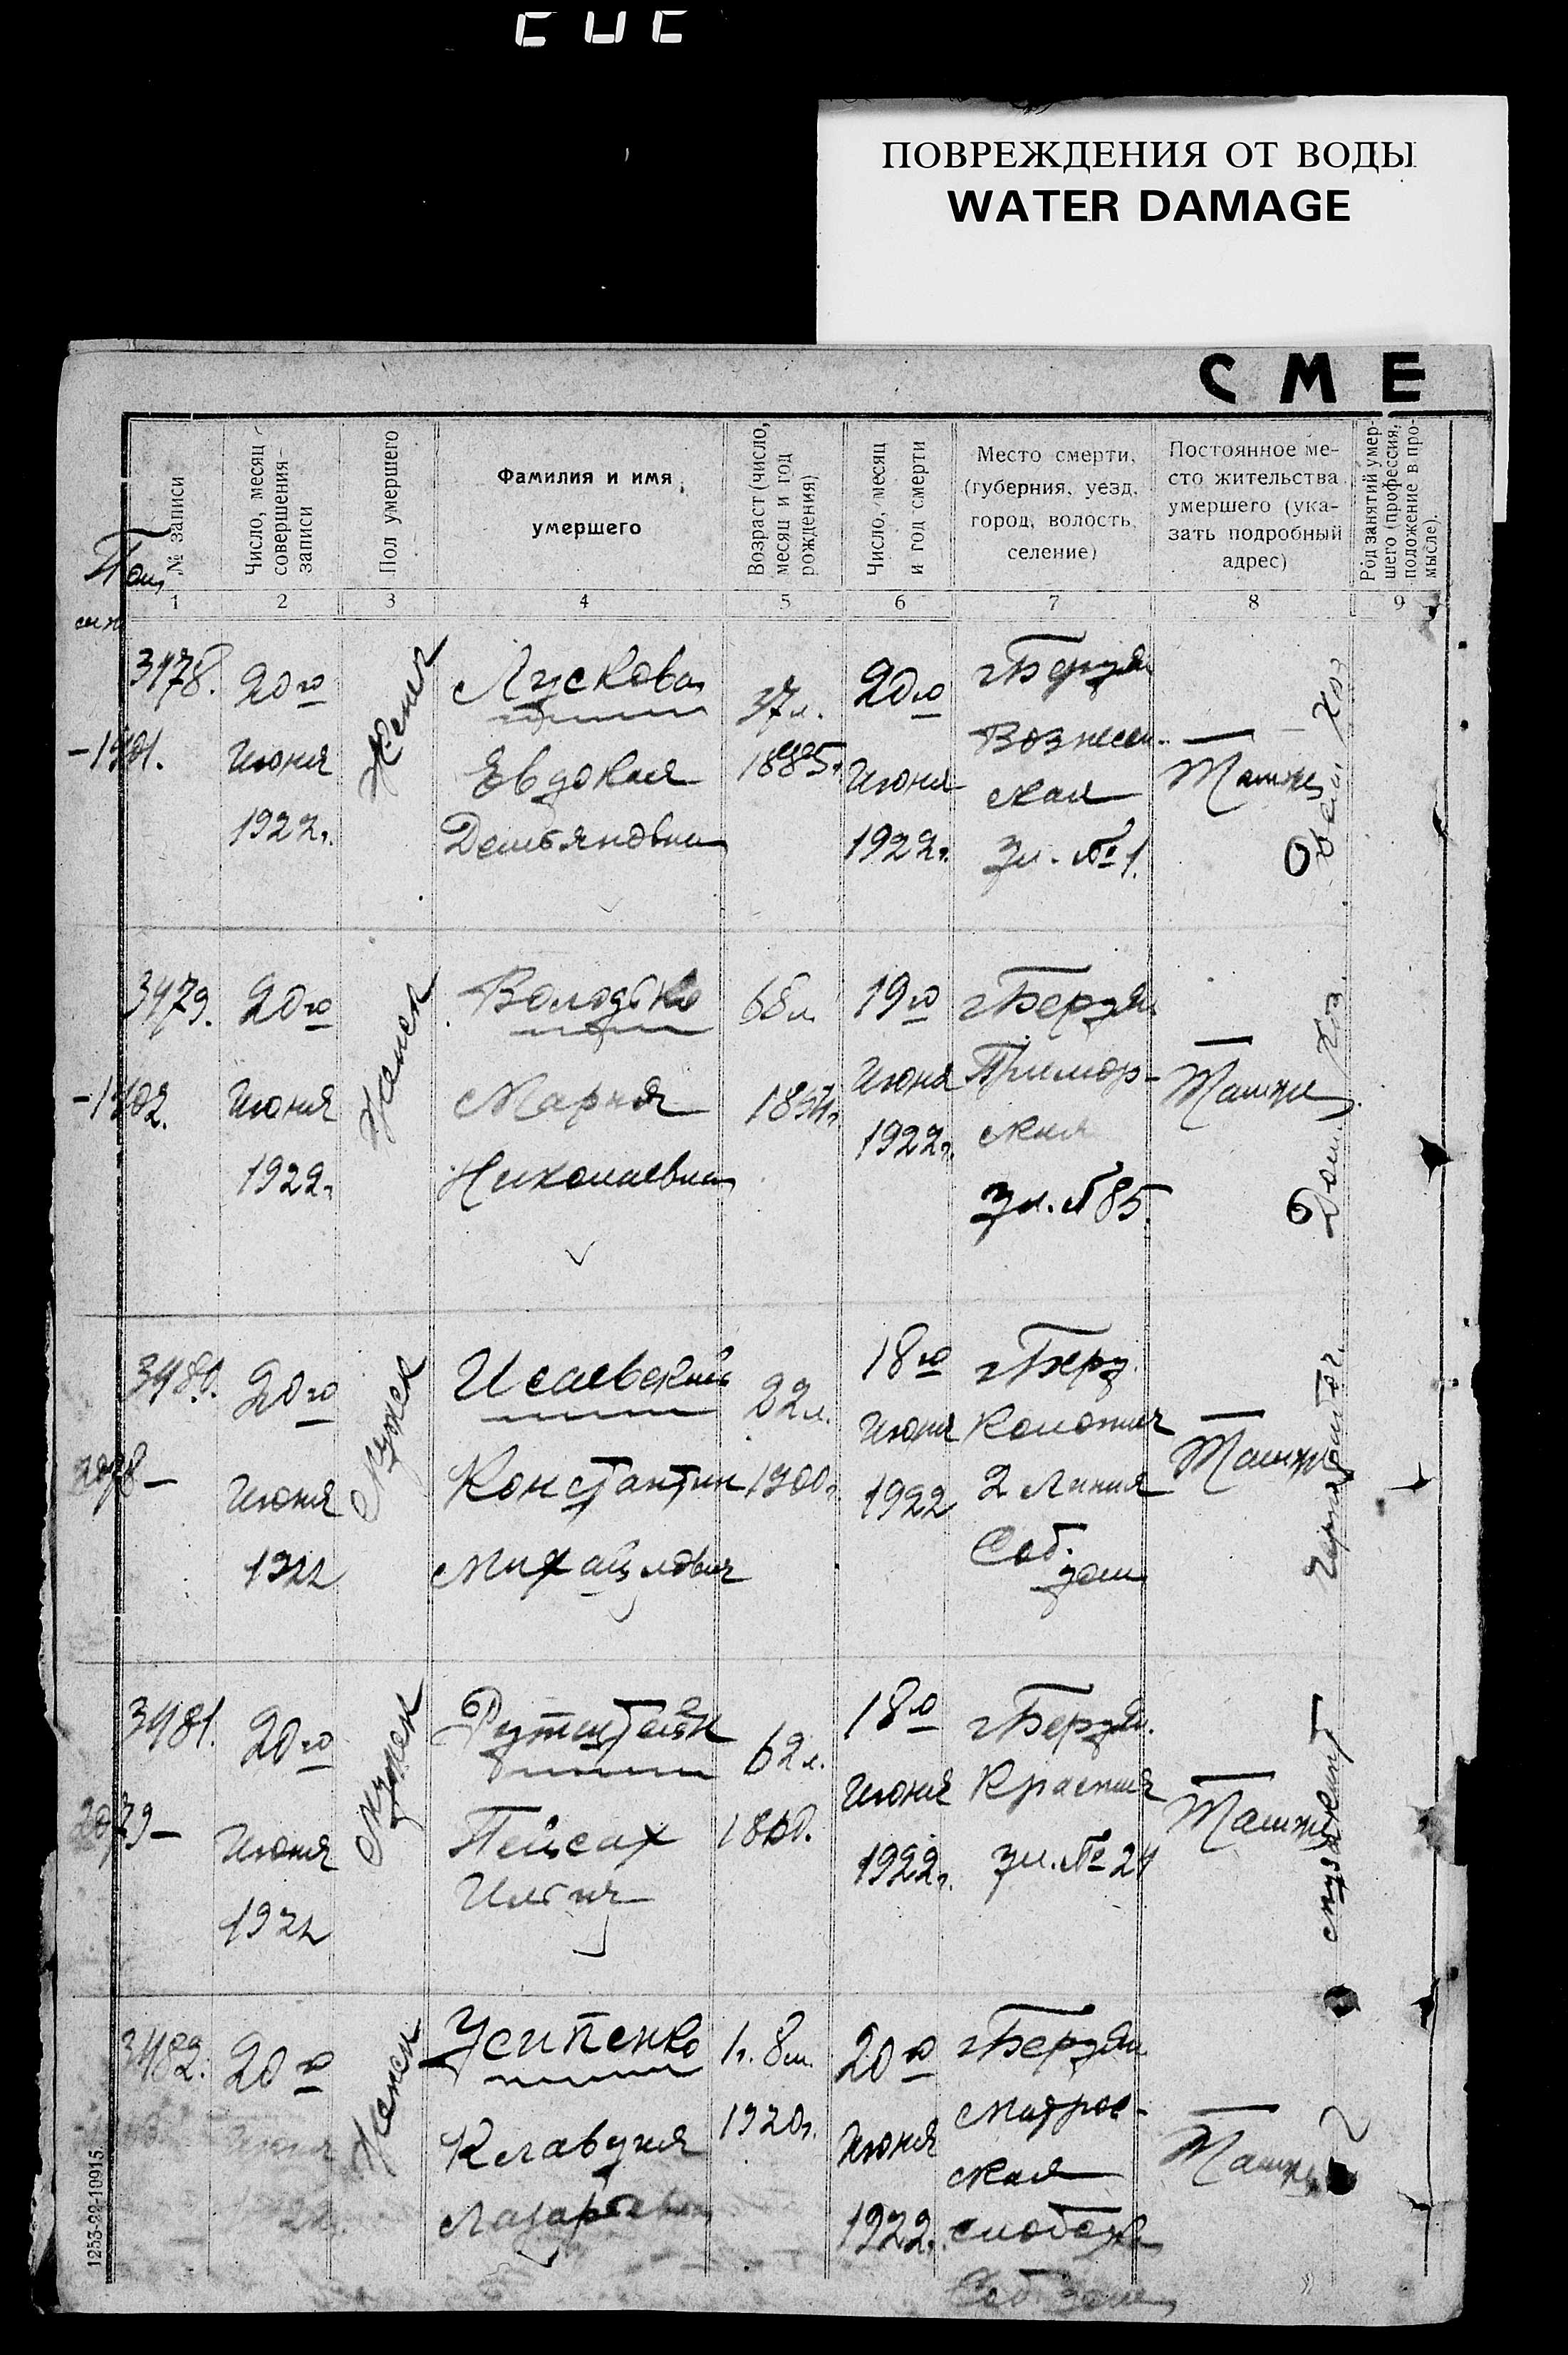 ПОВРЕЖДЕНИЯ ОТ ВОДЫ
WATER DAMAGE
СМЕ
№ записи
Число, месяц совершения записи
Пол умершего
Фамилия и имя умершего
Возраст (число, месяц и год рождения)
Число, месяц и год смерти
Место смерти, (губерния, уезд, город, волость, селение)
Постоянное место жительства умершего (указать подробный адрес)
Род занятий умершего (профессия, положение в промысле).
1 2 3 4 5 6 7 8 9
3478. 20го Женск Лускова 37л. 20го г Бердян
Июня Евдокия 1885г. Июня Вознесен-
ская
1922г. Демьяновна 1922г. ул. №1.
3479. 20го Женск Володько 68л. 19го г Бердян
Июня Мария Июня Примор-
1922г. Николаевна 1922г. ская
ул. №85.
3480. 20го Мужск Исаевский 22л. 18го г Берд.
Июня Константин 1900г. Июня Колония
1922 Михайлович 1922 2 Линия
Соб.
дом
3481. 20го Мужск 62л. 18го г Бердян.
2079– Июня Пейсах 1860. Июня Красная
1922 Ильич 1922г. ул. № 21
3482. 20го Женск Усипенко 1г. 8м. 20го г Бердян
Июня Клавдия 1920г. Июня Матрос-
ская
1922. Лазаревна 1922г. слободка
Соб дом
1253-22-10915